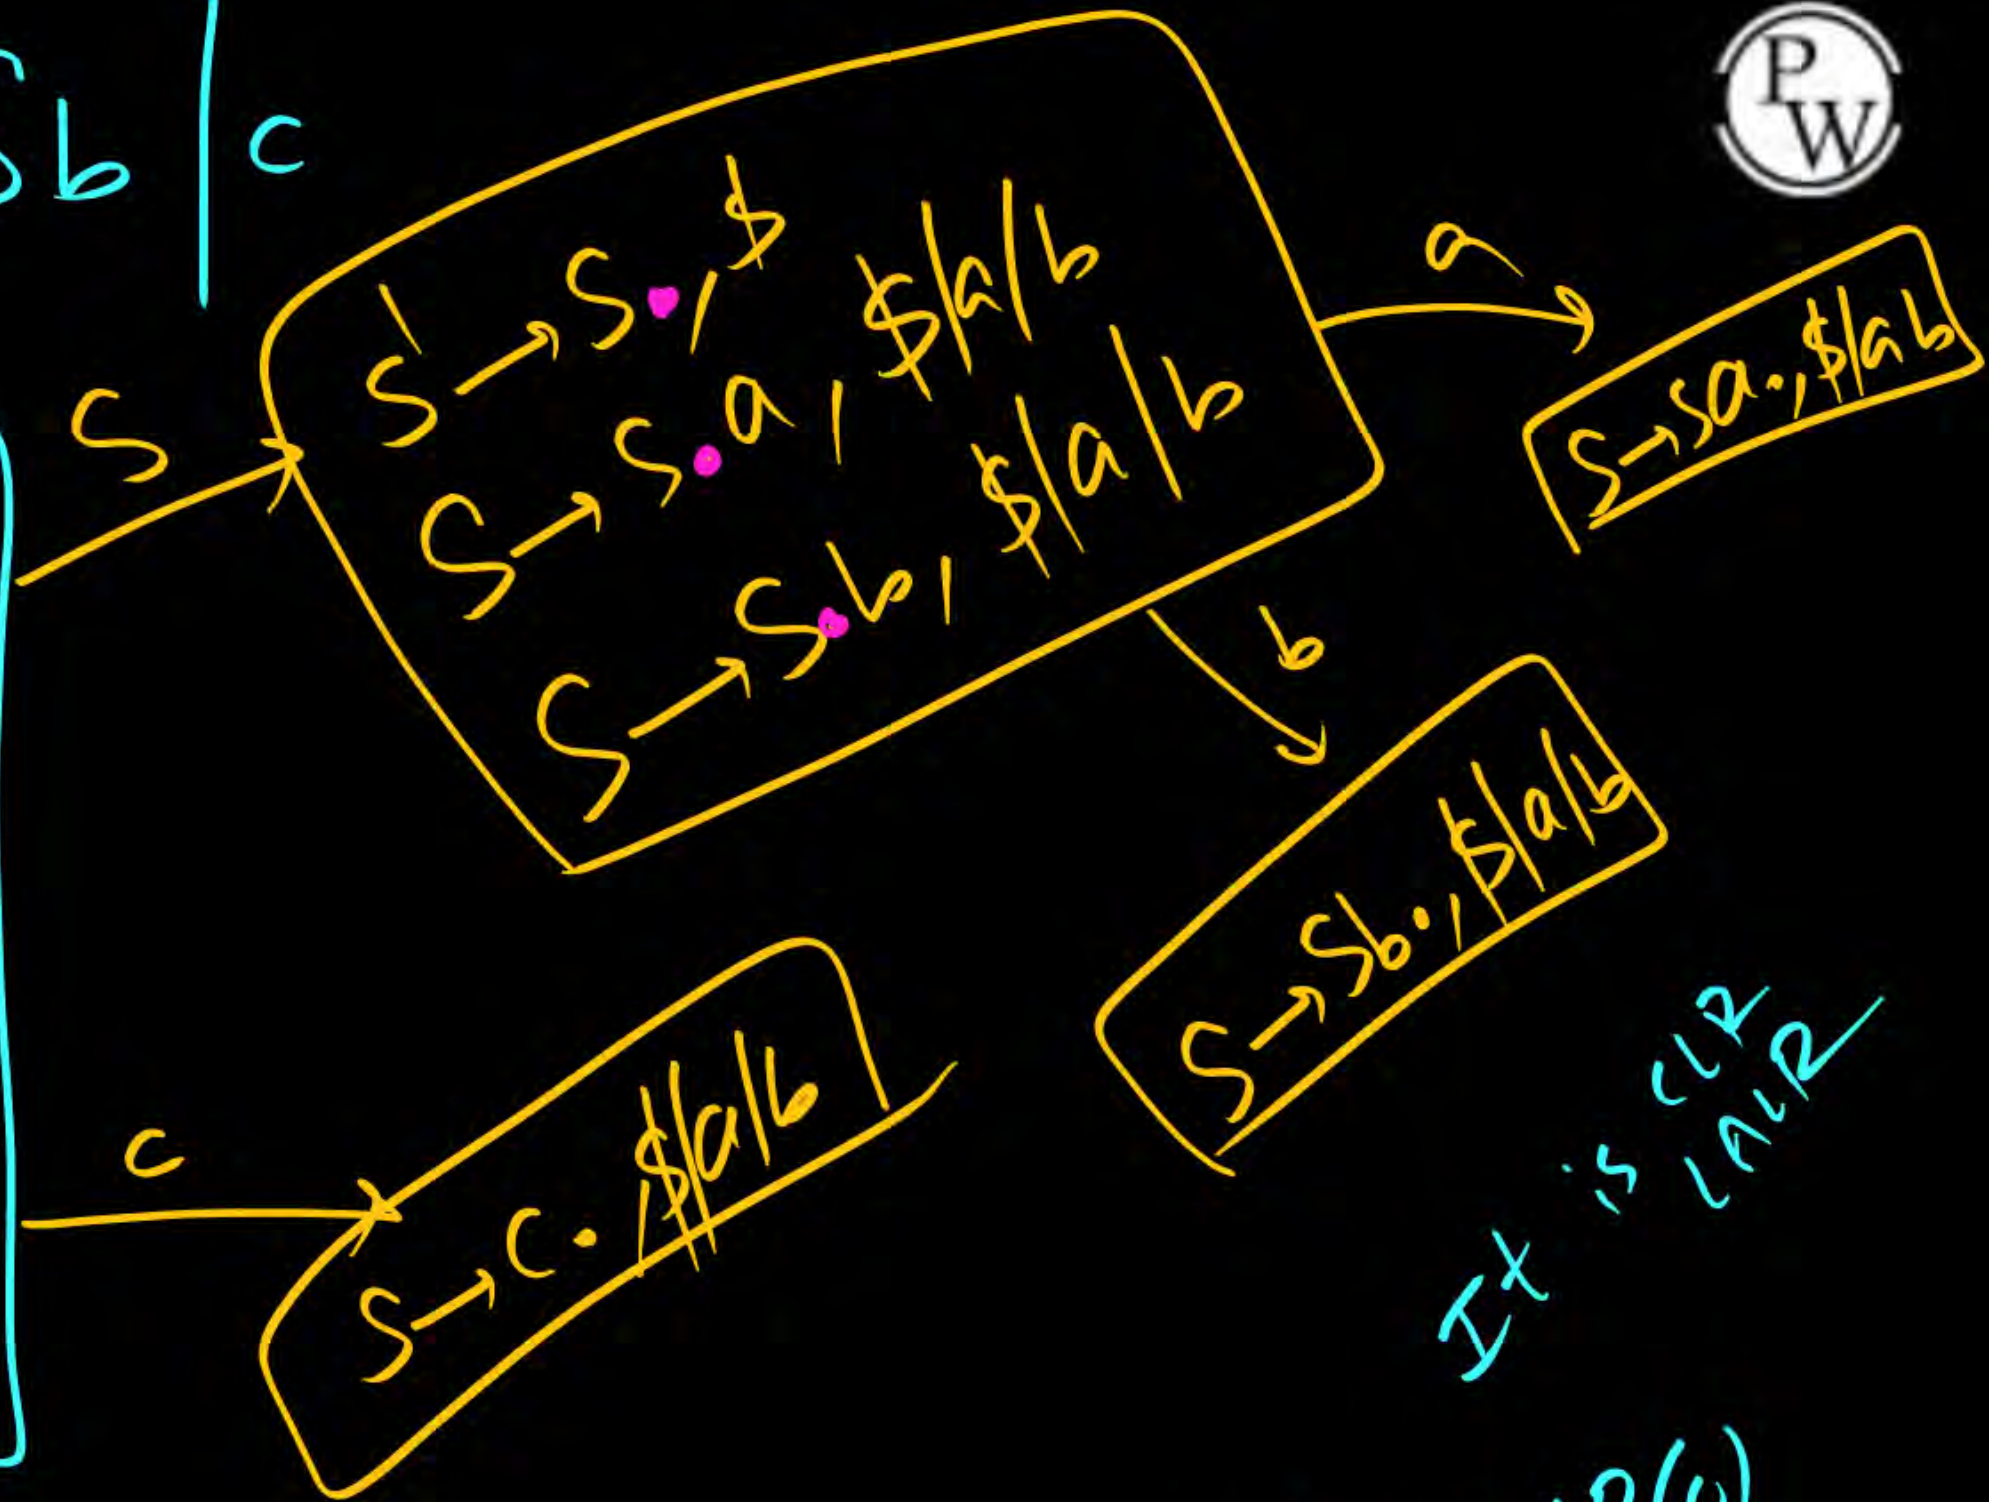 Sb | c
PW
S
S' → S., $
S → S.a, $/a/b
S → S.b, $/a/b
a
S → Sa., $/ab
b
S → Sb., $/a/b
c
S → c., $/a/b
It is CLR
LALR